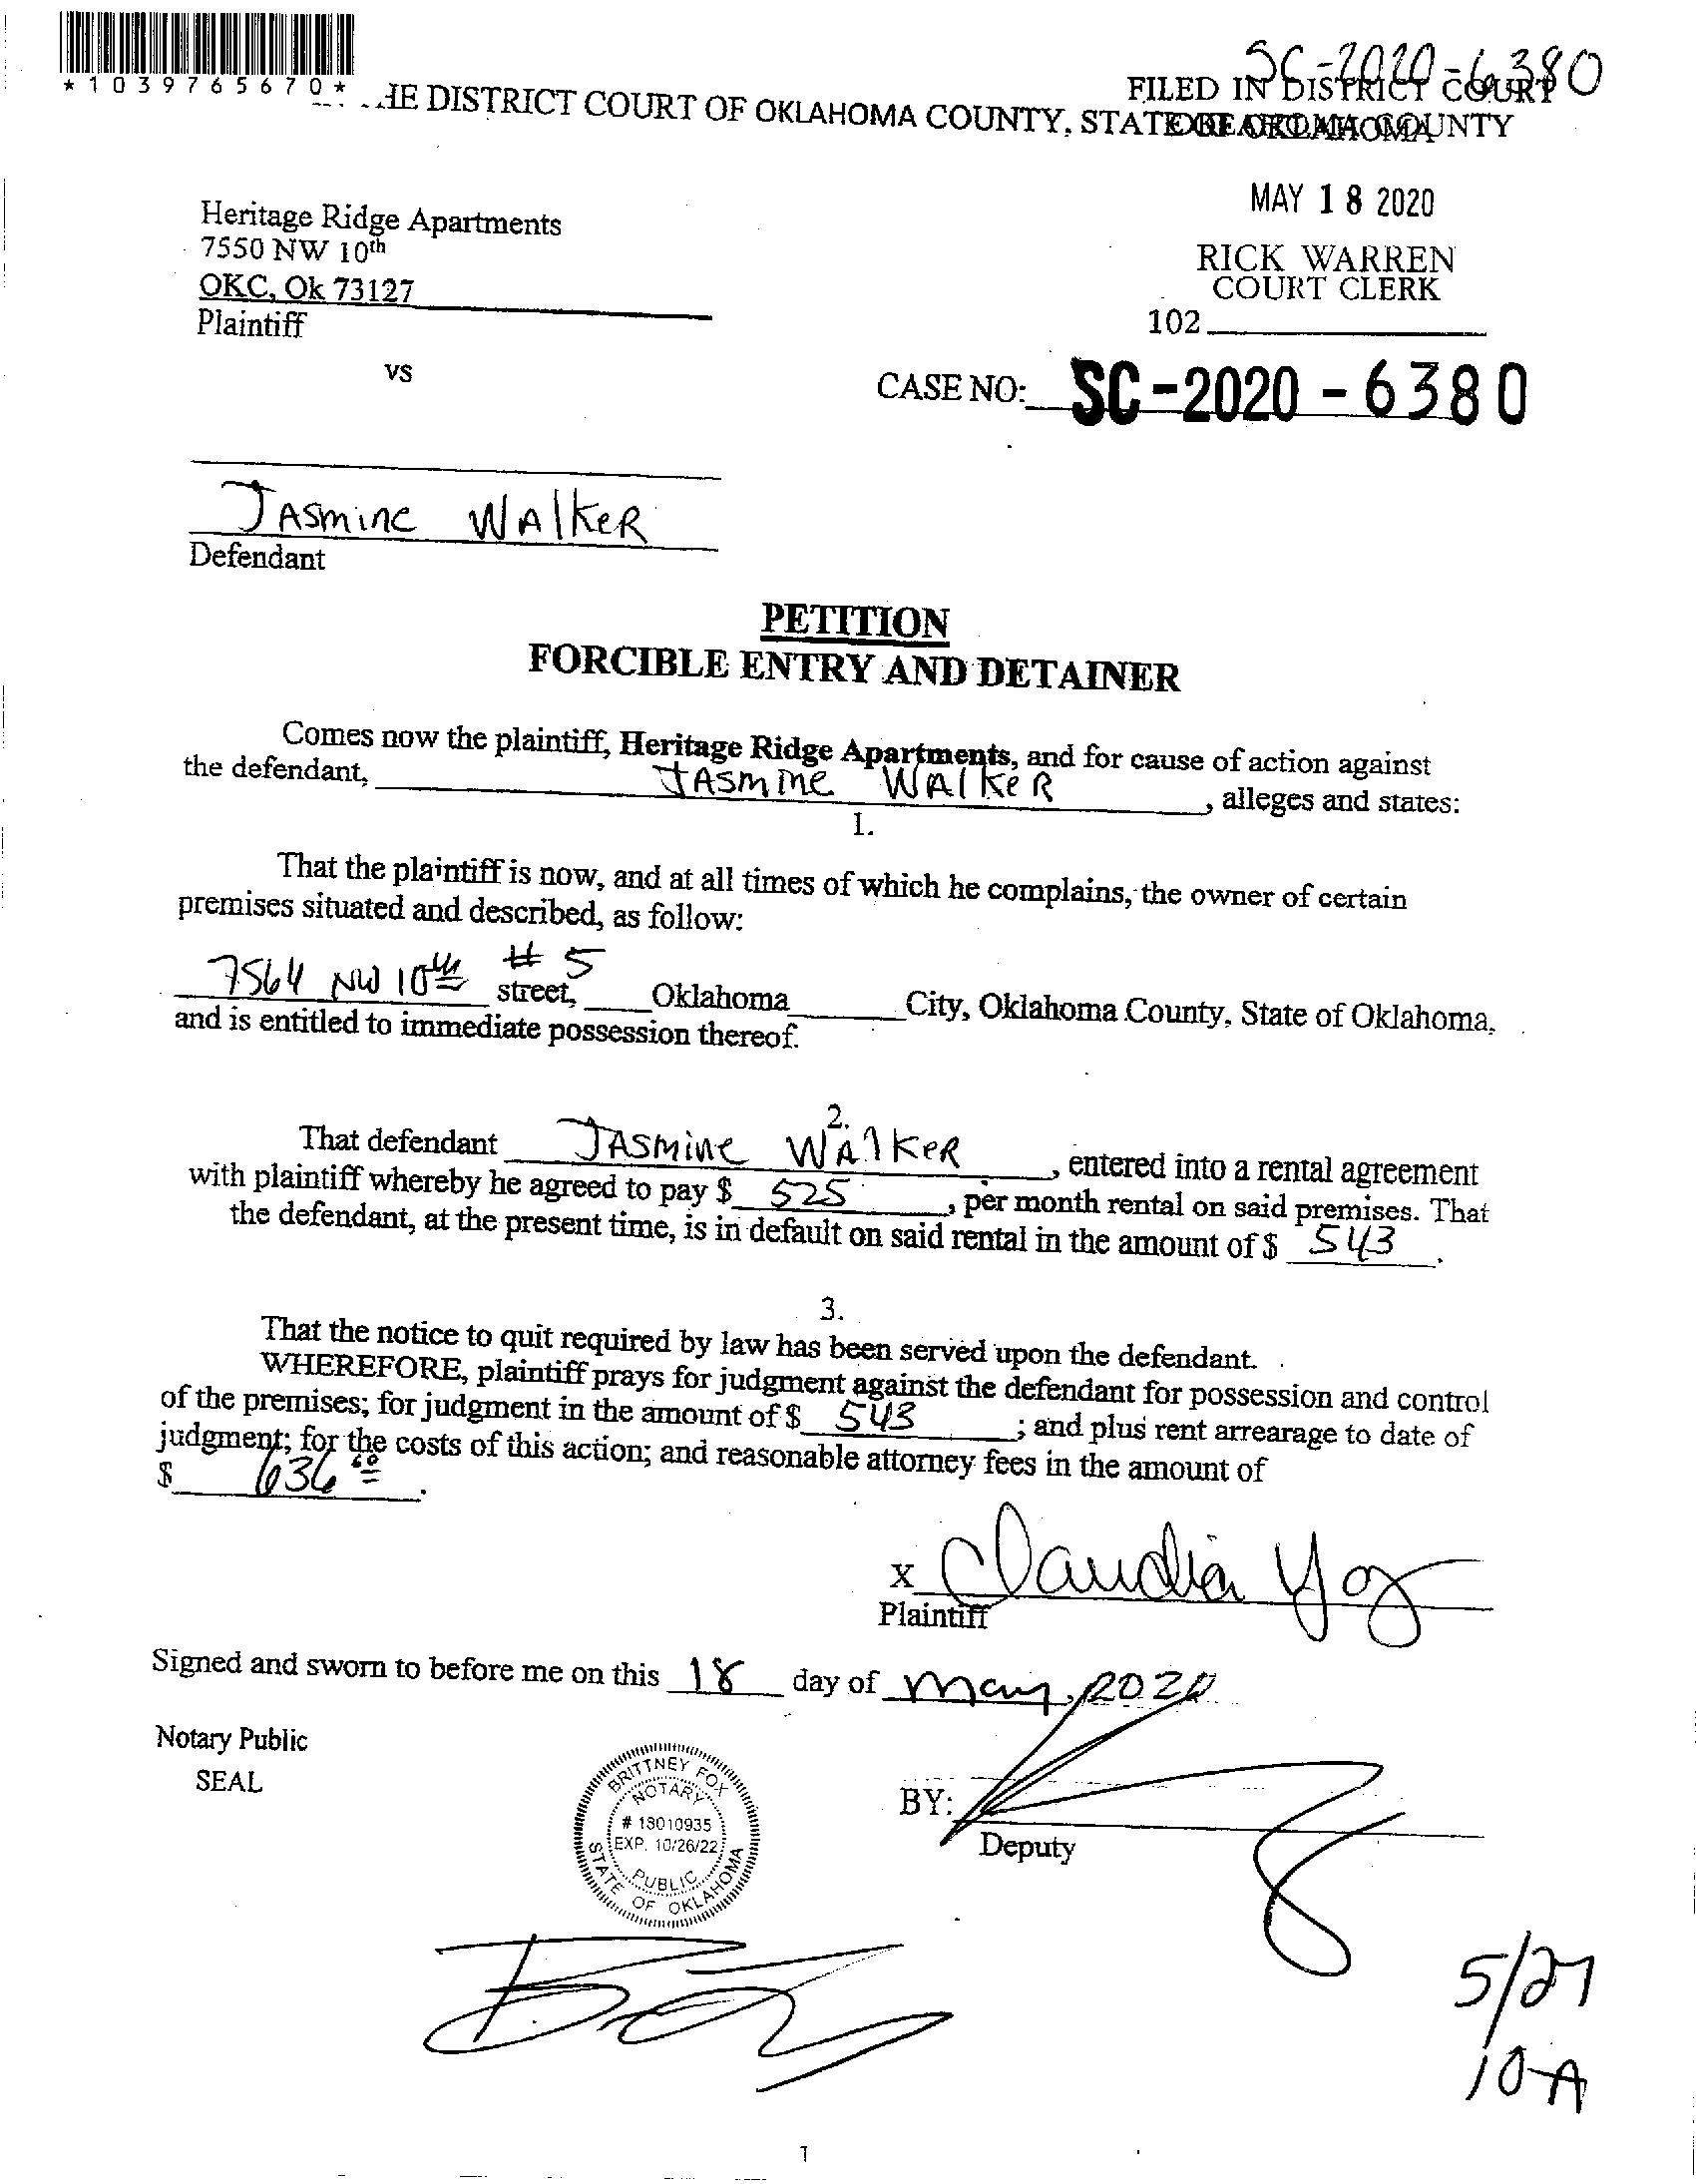 *1039765670*
SC-2020-6380
FILED IN DISTRICT COURT
OKLAHOMA COUNTY
HE DISTRICT COURT OF OKLAHOMA COUNTY, STATE OF OKLAHOMA
MAY 18 2020
RICK WARREN
COURT CLERK
102
Heritage Ridge Apartments
7550 NW 10th
OKC, Ok 73127
Plaintiff
vs
CASE NO: SC-2020-6380
JASmine WAlkeR
Defendant
PETITION
FORCIBLE ENTRY AND DETAINER
Comes now the plaintiff, Heritage Ridge Apartments, and for cause of action against
the defendant, JASmine WAlkeR, alleges and states:
1.
That the plaintiff is now, and at all times of which he complains, the owner of certain
premises situated and described, as follow:
7564 NW 10th # 5 street, Oklahoma City, Oklahoma County, State of Oklahoma,
and is entitled to immediate possession thereof.
2.
That defendant JASmine WAlkeR, entered into a rental agreement
with plaintiff whereby he agreed to pay $ 525, per month rental on said premises. That
the defendant, at the present time, is in default on said rental in the amount of $ 543.
3.
That the notice to quit required by law has been served upon the defendant.
WHEREFORE, plaintiff prays for judgment against the defendant for possession and control
of the premises; for judgment in the amount of $ 543; and plus rent arrearage to date of
judgment; for the costs of this action; and reasonable attorney fees in the amount of
$ 636.
x Claudia Yoz
Plaintiff
Signed and sworn to before me on this 18 day of May, 2020
Notary Public
SEAL
BRITTNEY FOX
NOTARY
# 18010935
EXP. 10/26/22
PUBLIC
STATE OF OKLAHOMA
BY:
Deputy
5/27
10-A
1